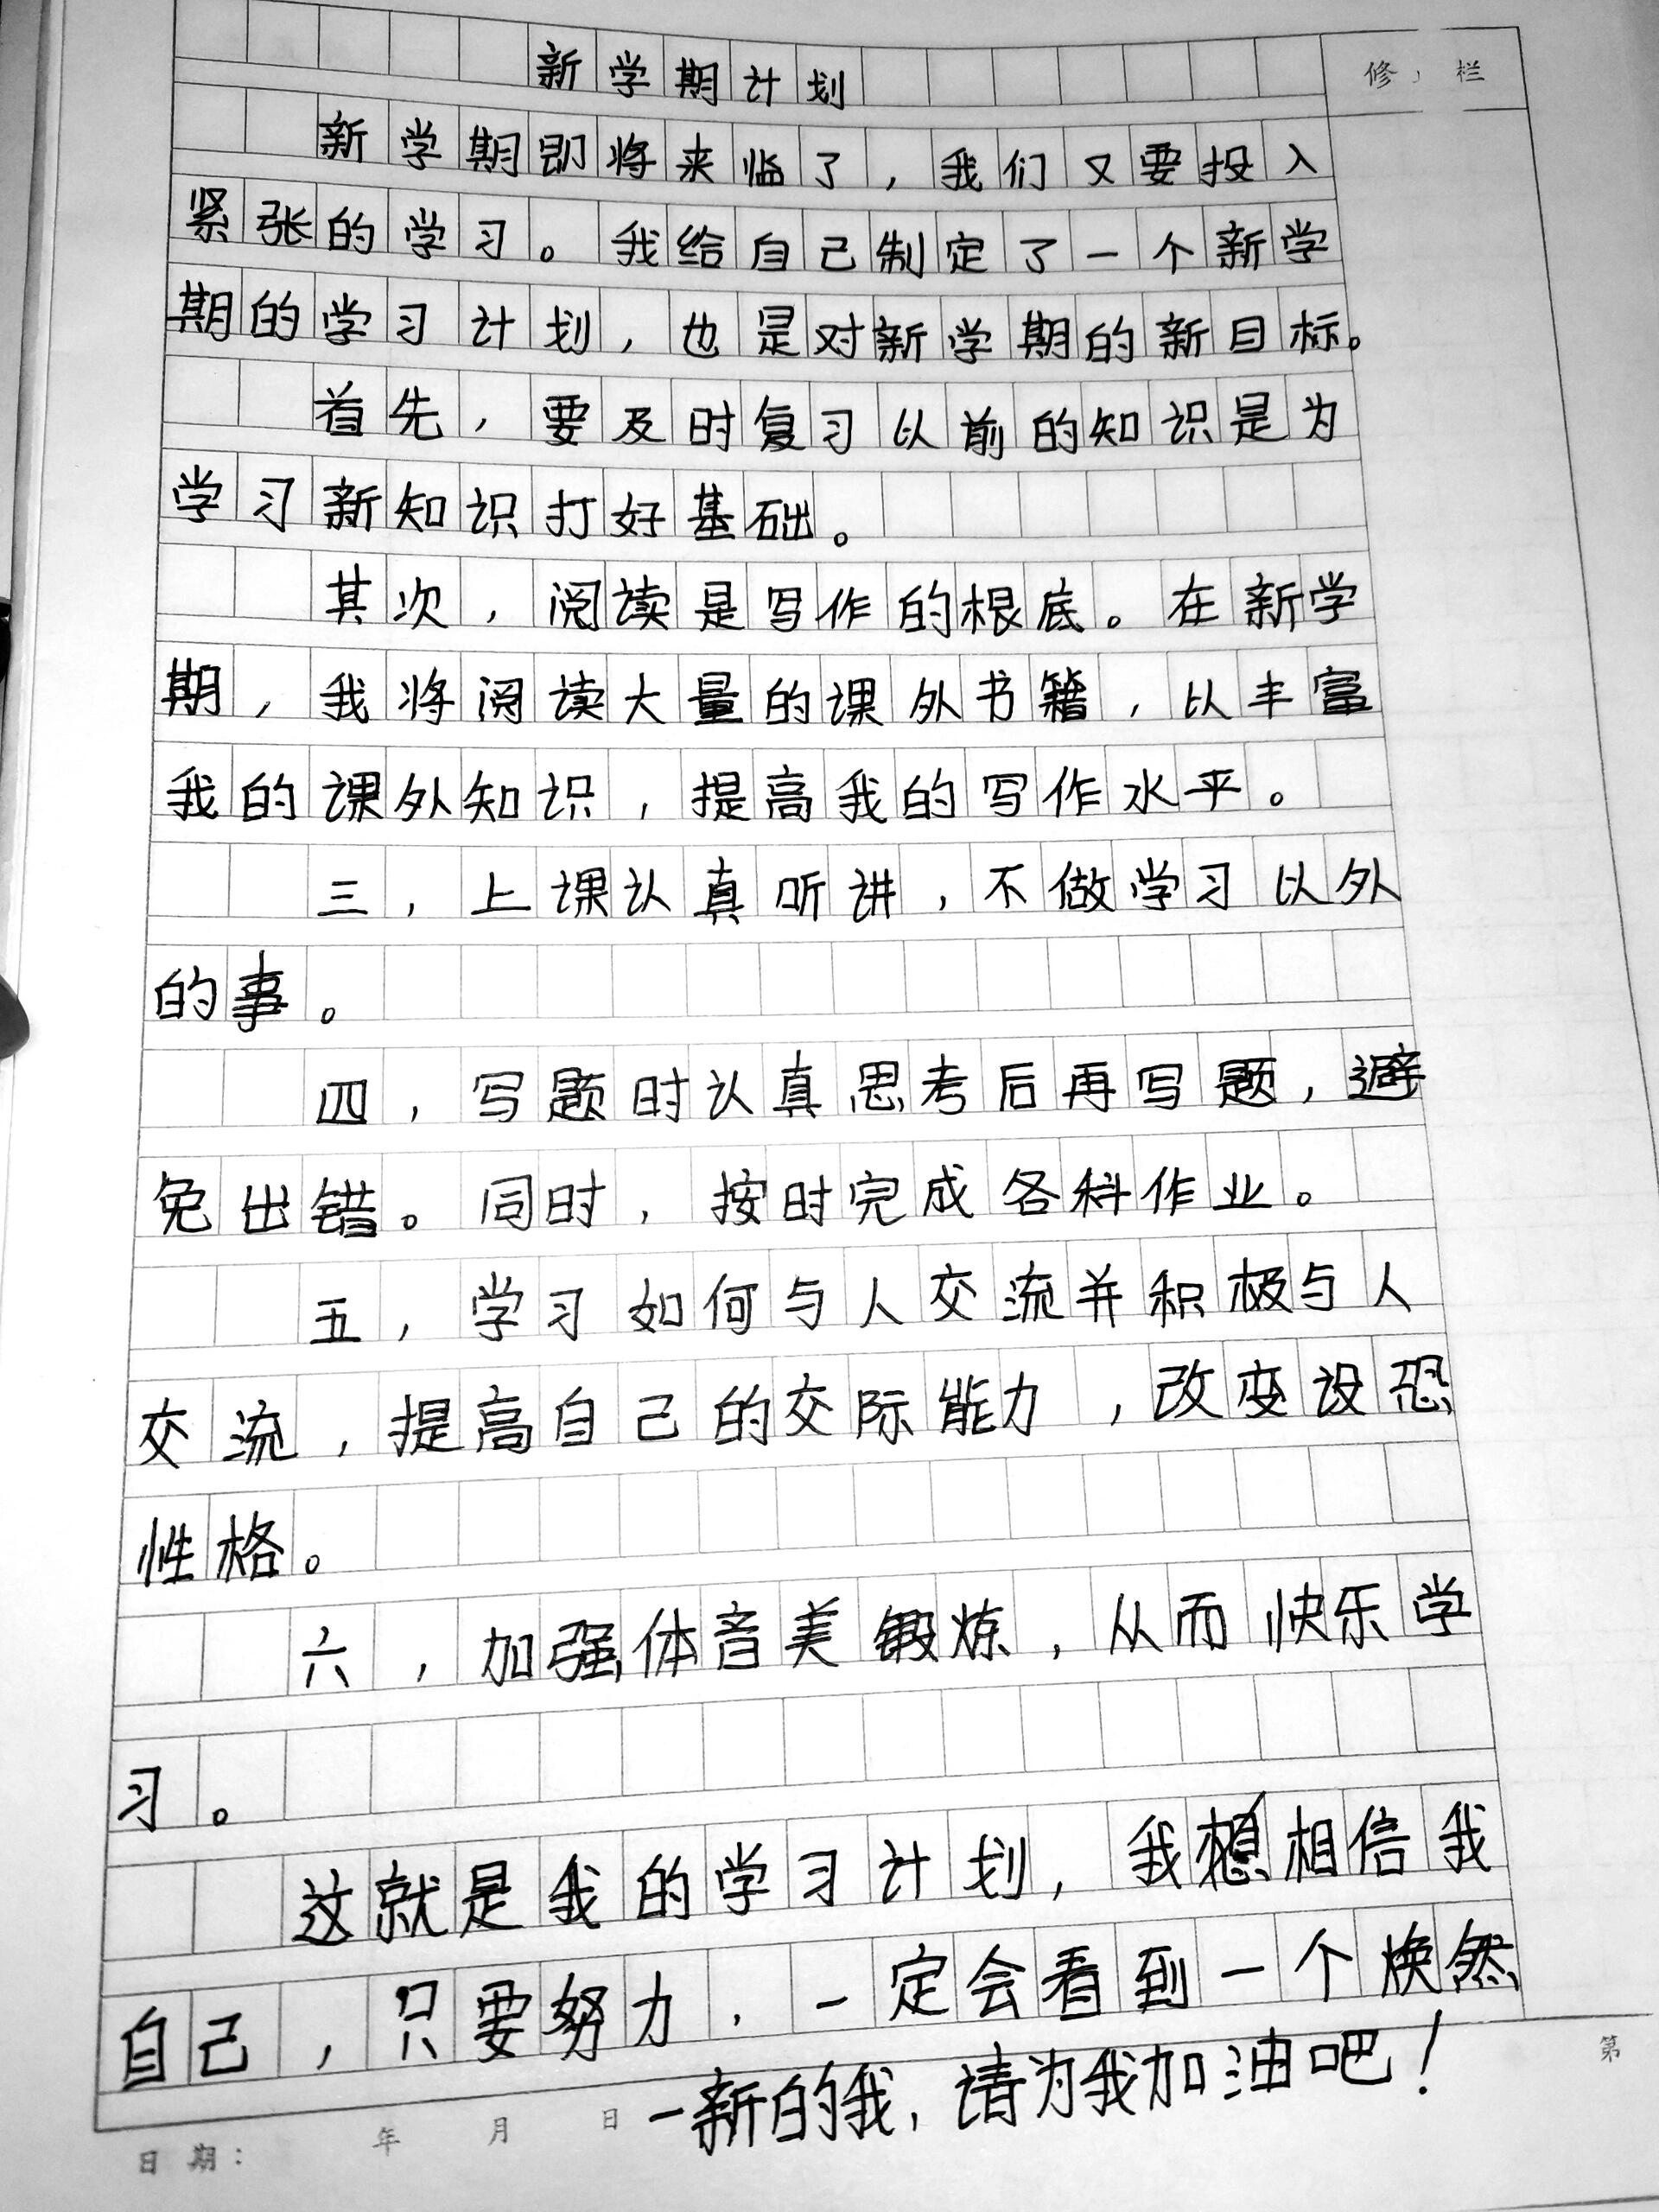 新学期计划
修 栏
新学期即将来临了，我们又要投入
紧张的学习。我给自己制定了一个新学
期的学习计划，也是对新学期的新目标。
首先，要及时复习以前的知识是为
学习新知识打好基础。
其次，阅读是写作的根底。在新学
期，我将阅读大量的课外书籍，以丰富
我的课外知识，提高我的写作水平。
三，上课认真听讲，不做学习以外
的事。
四，写题时认真思考后再写题，避
免出错。同时，按时完成各科作业。
五，学习如何与人交流并积极与人
交流，提高自己的交际能力，改变设恐
性格。
六，加强体音美锻炼，从而快乐学
习。
这就是我的学习计划，我想相信我
自己，只要努力，一定会看到一个焕然
一新的我，请为我加油吧！
日期： 年 月 日
第